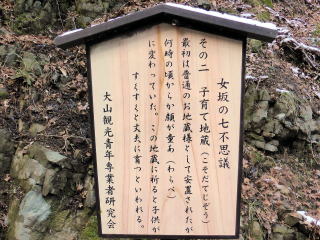 女坂の七不思議
その二　子育て地蔵（こそだてじぞう）
最初は普通のお地蔵様として安置されたが
何時の頃からか顔が童（わらべ）
に変わっていた。この地蔵に祈ると子供が
すくすくと丈夫に育つといわれる。
大山観光青年専業者研究会